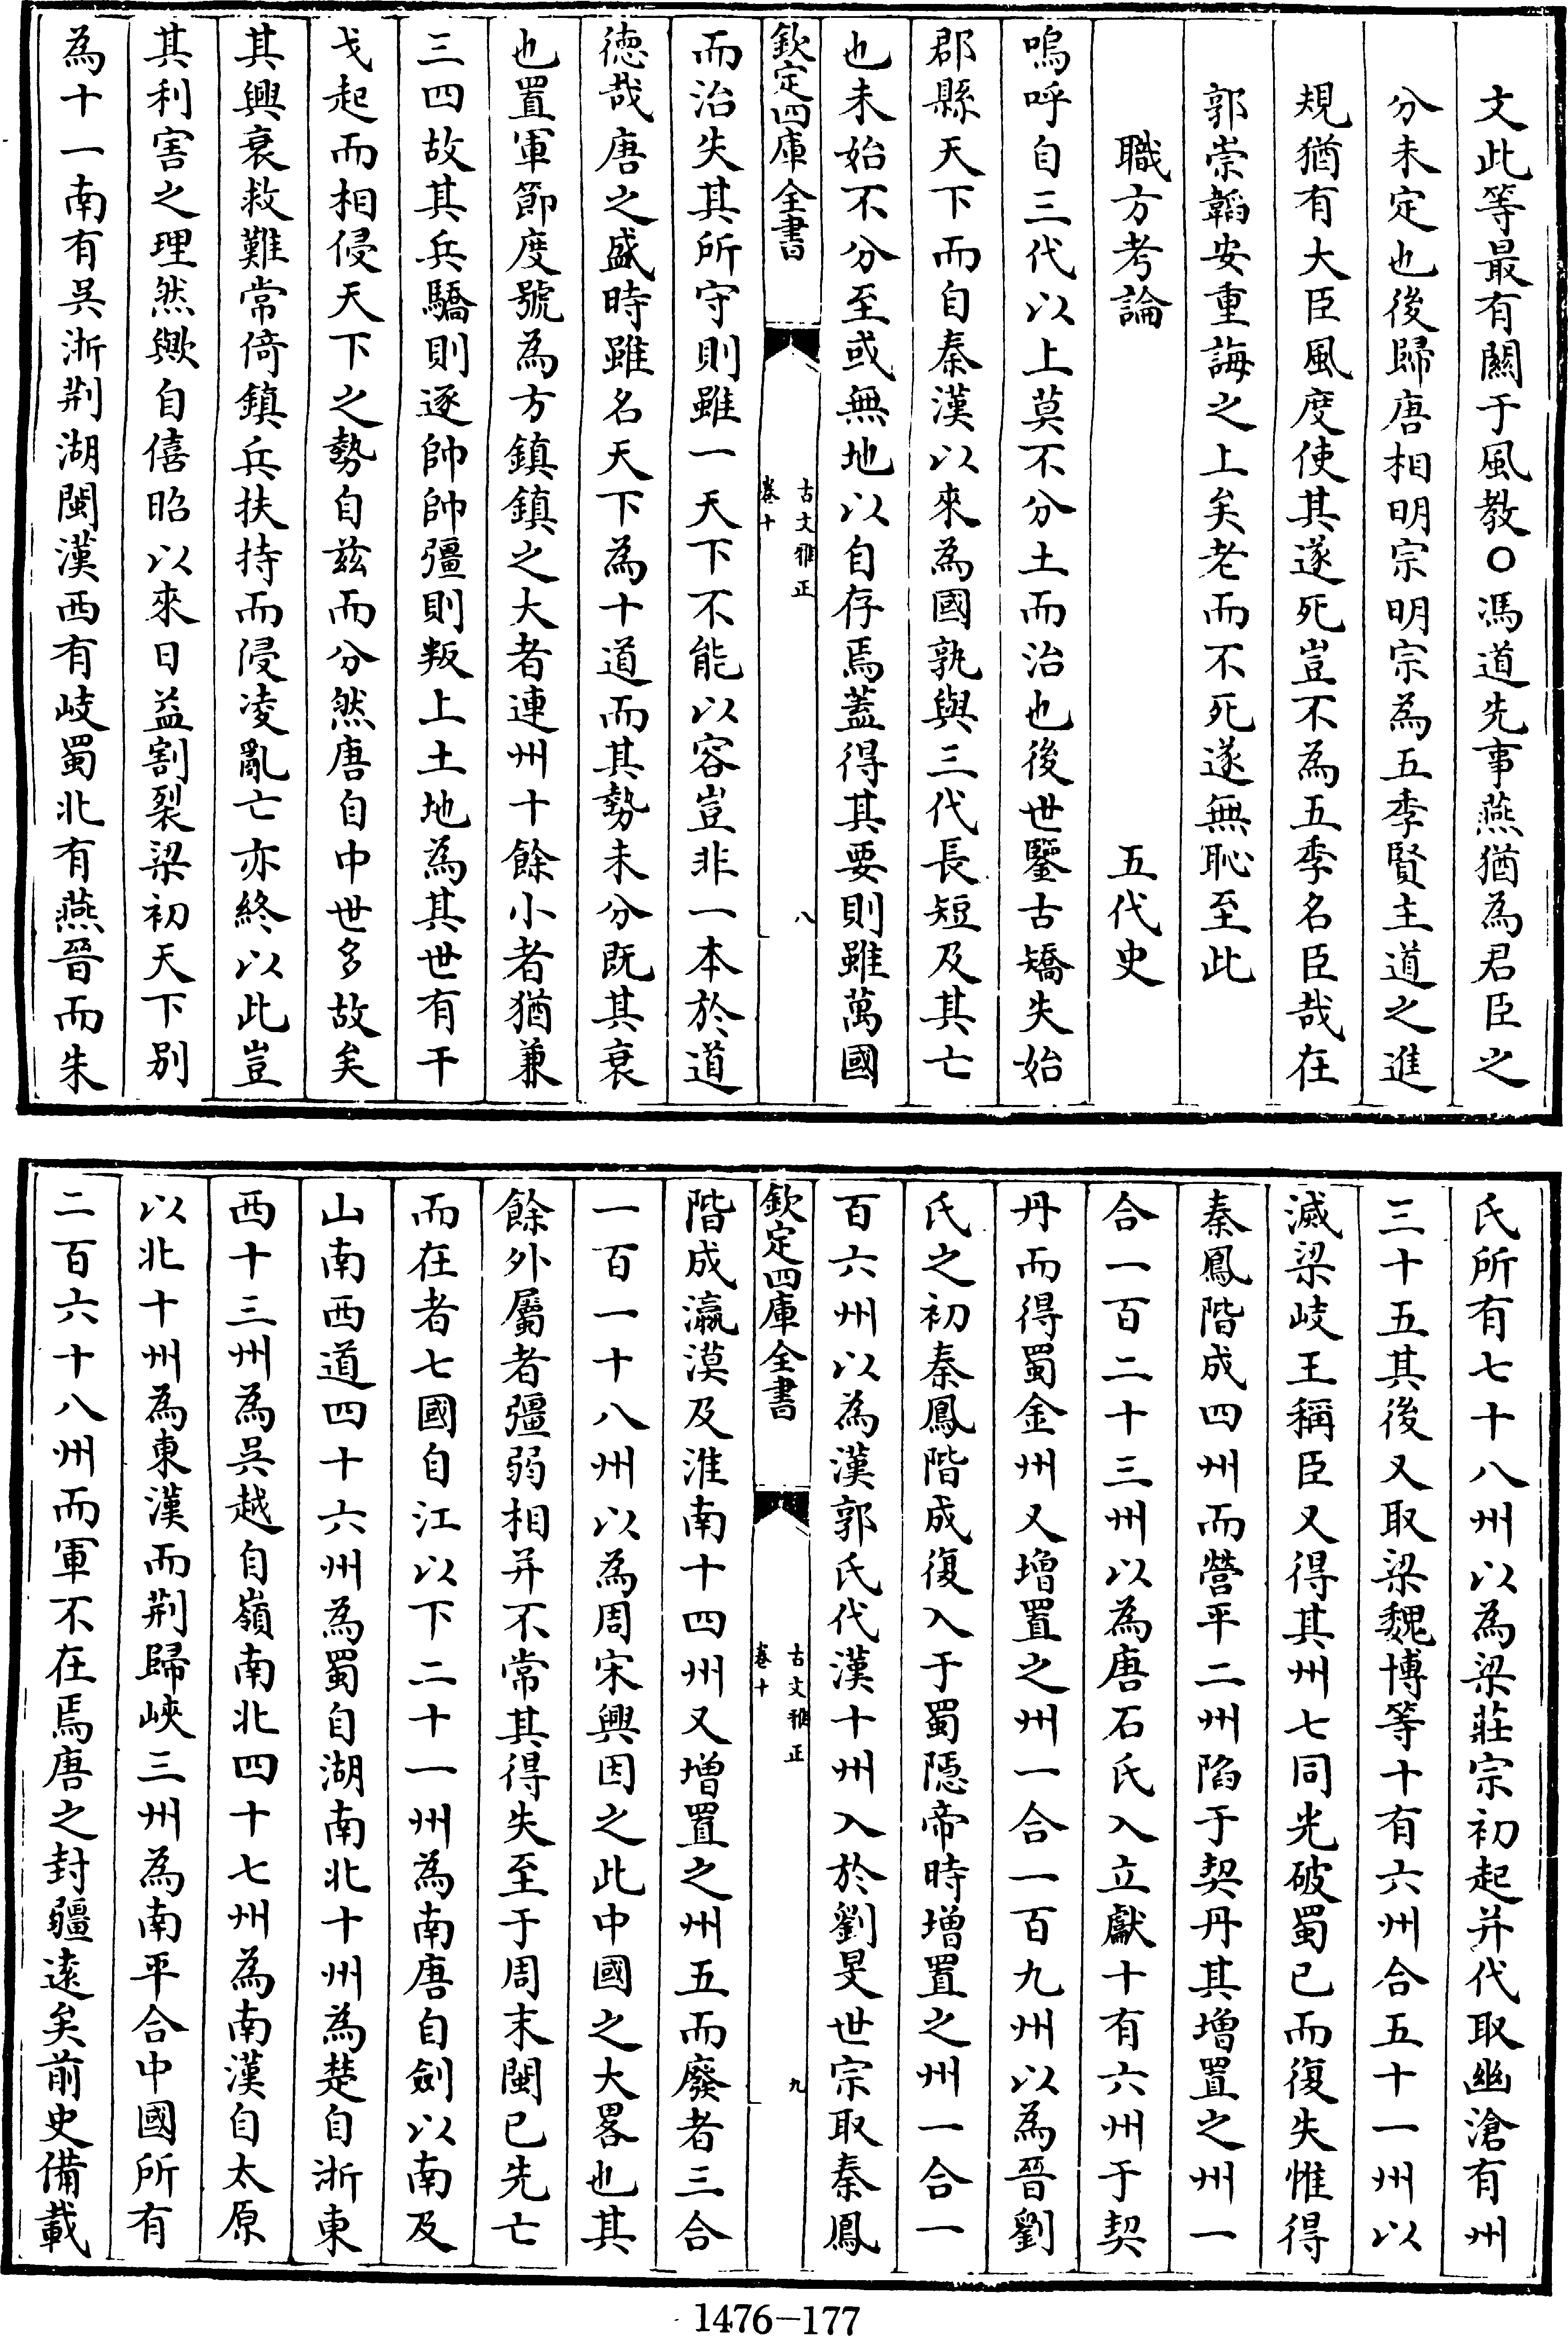 文此等最有關于風教○馮道先事燕猶為君臣之
分未定也後歸唐相明宗明宗為五季賢主道之進
規猶有大臣風度使其遂死豈不為五季名臣哉在
郭崇韜安重誨之上矣老而不死遂無恥至此
職方考論　五代史
嗚呼自三代以上莫不分土而治也後世鑒古矯失始
郡縣天下而自秦漢以來為國孰與三代長短及其亡
也未始不分至或無地以自存焉蓋得其要則雖萬國
欽定四庫全書　古文雅正　卷十　八
而治失其所守則雖一天下不能以容豈非一本於道
德哉唐之盛時雖名天下為十道而其勢未分既其衰
也置軍節度號為方鎮鎮之大者連州十餘小者猶兼
三四故其兵驕則逐帥帥彊則叛上土地為其世有干
戈起而相侵天下之勢自茲而分然唐自中世多故矣
其興衰救難常倚鎮兵扶持而侵凌亂亡亦終以此豈
其利害之理然歟自僖昭以來日益割裂梁初天下別
為十一南有吳浙荆湖閩漢西有岐蜀北有燕晉而朱
氏所有七十八州以為梁莊宗初起并代取幽滄有州
三十五其後又取梁魏博等十有六州合五十一州以
滅梁岐王稱臣又得其州七同光破蜀已而復失惟得
秦鳳階成四州而營平二州陷于契丹其增置之州一
合一百二十三州以為唐石氏入立獻十有六州于契
丹而得蜀金州又增置之州一合一百九州以為晉劉
氏之初秦鳳階成復入于蜀隱帝時增置之州一合一
百六州以為漢郭氏代漢十州入於劉旻世宗取秦鳳
欽定四庫全書　古文雅正　卷十　九
階成瀛漠及淮南十四州又增置之州五而廢者三合
一百一十八州以為周宋興因之此中國之大畧也其
餘外屬者彊弱相并不常其得失至于周末閩已先亡
而在者七國自江以下二十一州為南唐自劍以南及
山南西道四十六州為蜀自湖南北十州為楚自浙東
西十三州為吳越自嶺南北四十七州為南漢自太原
以北十州為東漢而荆歸峽三州為南平合中國所有
二百六十八州而軍不在焉唐之封疆遠矣前史備載
1476-177